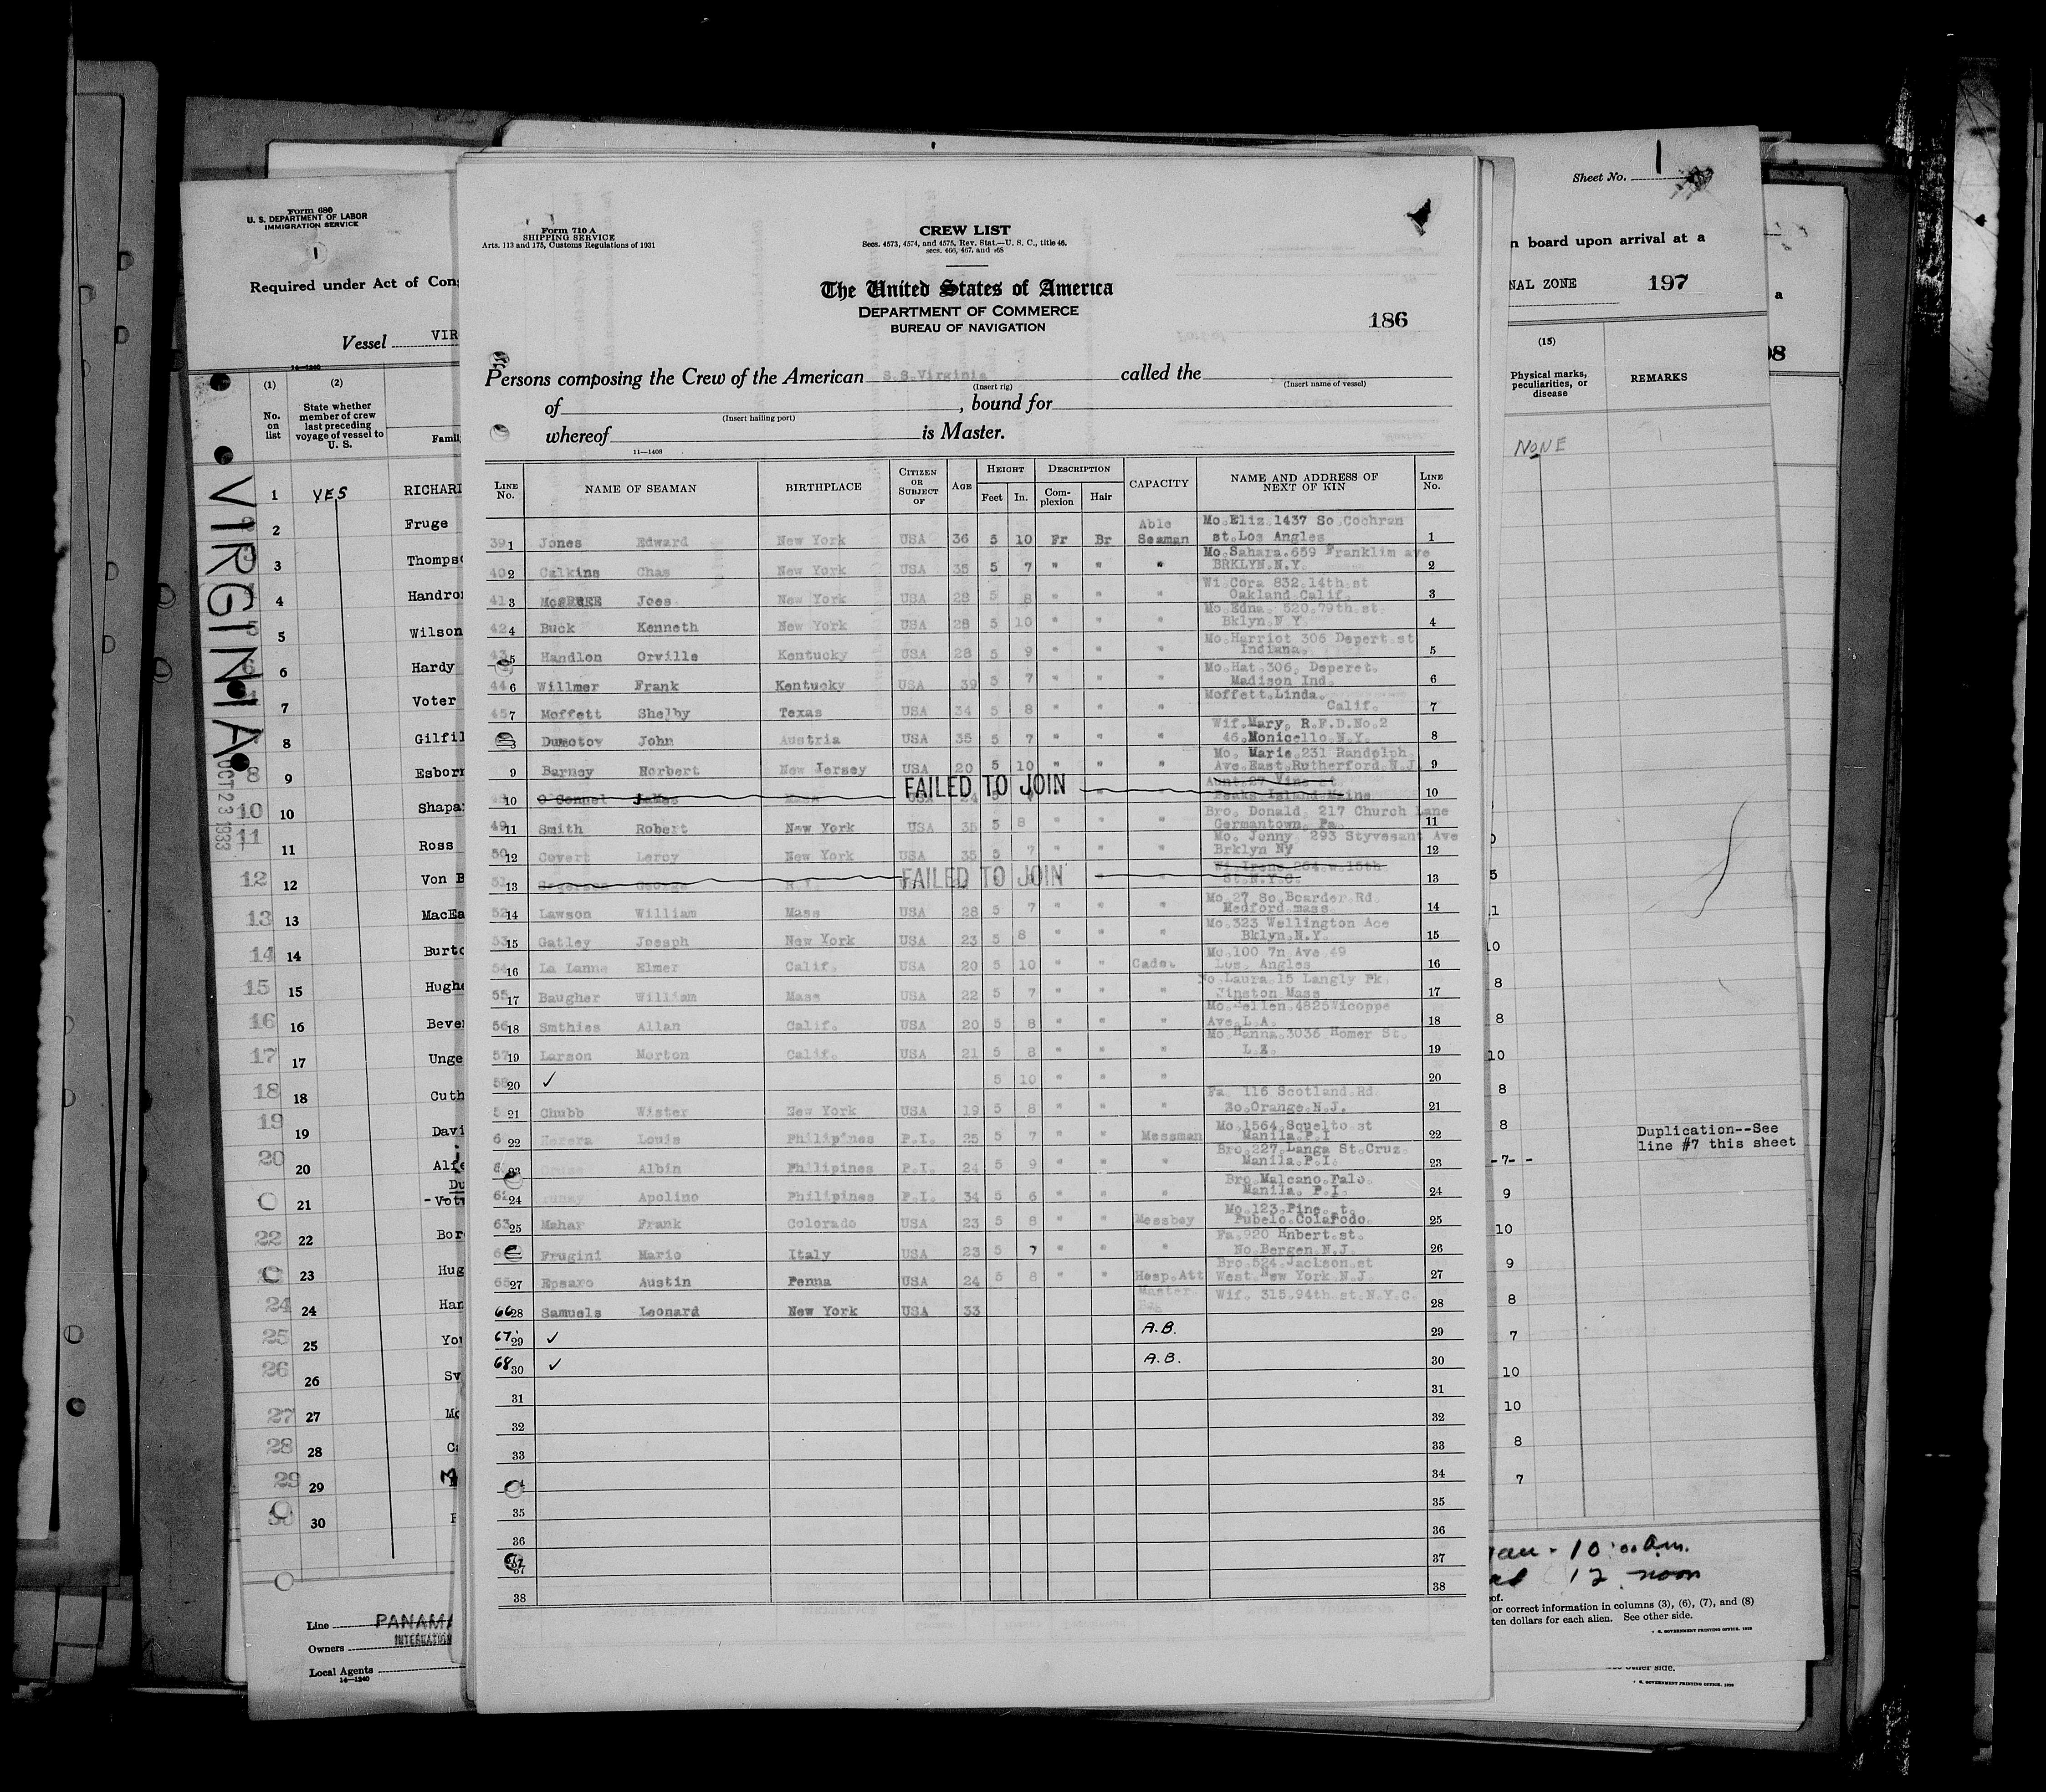 Form 680
U. S. DEPARTMENT OF LABOR
IMMIGRATION SERVICE
1
Required under Act of
Vessel VIR
14—1240
(1) (2)
No. on list
State whether member of crew last preceding voyage of vessel to U. S.
VIRGINIA
OCT 23 1933
1 YES RICHARD
2 Fruge
3
4
5 Wilson
6 Hardy
7 Voter
8
8 9 Esborn
10 10
11 11 Ross
12 12 Von B
13 13
14 14
15 15
16 16
17 17 Unge
18 18
19 19
20 20
21
22 22
23
24 24
25 25
26 26
27 27
28 28
29 29
30
Line PANAMA
Owners INTERNATION
Local Agents
14—1240
Form 710 A
SHIPPING SERVICE
Arts. 113 and 175, Customs Regulations of 1931
CREW LIST
Secs. 4573, 4574, and 4575, Rev. Stat.—U. S. C., title 46,
secs. 466, 467, and 468
The United States of America
DEPARTMENT OF COMMERCE
BUREAU OF NAVIGATION
186
Persons composing the Crew of the American S.S.Virginia called the
(Insert rig) (Insert name of vessel)
of , bound for
(Insert hailing port)
whereof is Master.
11—1408
LINE No. NAME OF SEAMAN BIRTHPLACE CITIZEN OR SUBJECT OF AGE HEIGHT Feet In. DESCRIPTION Complexion Hair CAPACITY NAME AND ADDRESS OF NEXT OF KIN LINE No.
39 1 Jones Edward New York USA 36 5 10 Fr Br Able Seaman Mo.Eliz.1437 So.Cochran st.Los Angles 1
40 2 Calkins Chas New York USA 35 5 7 " " " Mo.Sahara.659 Franklim ave BRKLYN.N.Y. 2
41 3 Joes New York USA 28 5 8 " " " Wi Cora 832.14th st Oakland Calif. 3
42 4 Buck Kenneth New York USA 28 5 10 " " " Mo.Edna. 520.79th st. Bklyn.N Y. 4
43 5 Handlon Orville Kentucky USA 28 5 9 " " " Mo.Harriot 306 Depert st Indiana. 5
44 6 Willmer Frank Kentucky USA 39 5 7 " " " Mo.Hat.306. Deperet. Madison Ind. 6
45 7 Moffett Shelby Texas USA 34 5 8 " " " Moffett.Linda. Calif. 7
John Austria USA 35 5 7 " " " Wif.Mary. R.F.D.No.2 46.Monicello.N.Y. 8
9 Barney Herbert New Jersey USA 20 5 10 " " " Mo. Marie.231 Randolph. Ave.East.Rutherford.N.J. 9
10 O'Connel James Mass USA 24 5 FAILED TO JOIN Aunt.27 Vine st Peaks Island Maine 10
49 11 Smith Robert New York USA 35 5 8 " " " Bro. Donald. 217 Church Lane Germantown. Pa. 11
50 12 Covert Leroy New York USA 35 5 7 " " " Mo. Jenny. 293 Styvesant Ave Brklyn Ny 12
51 13 George N.Y. FAILED TO JOIN Wi.Irene 264.w.15th St.N.Y.C. 13
52 14 Lawson William Mass USA 28 5 7 " " " Mo.27 So.Boarder.Rd. Medford.mass. 14
53 15 Gatley Joesph New York USA 23 5 8 " " " Mo.323 Wellington Ace Bklyn.N.Y. 15
54 16 La Lanne Elmer Calif. USA 20 5 10 " " Cadet Mo.100 7n Ave 49 Los. Angles 16
55 17 Baugher William Mass USA 22 5 7 " " " Laura.15 Langly Pk. Mass 17
56 18 Smthies Allan Calif. USA 20 5 8 " " " Ave.L.A. 18
57 19 Larson Morton Calif. USA 21 5 8 " " " Mo.Hanna.3036 Homer St. 19
58 20 ✓ 5 10 " " " 20
21 Chubb Wister New York USA 19 5 8 " " " Fa. 116 Scotland.Rd. So.Orange.N.J. 21
22 Herera Louis Philipines P.I. 25 5 7 " " Messman Mo.1564.Squelto st Manila.P.I 22
23 Albin Philipines P.I. 24 5 9 " " " Bro.227.Langa St.Cruz. Manila.P.I. 23
62 24 Apolino Philipines P.I. 34 5 6 " " " Bro.Malcano.Palo. Manila. P.I. 24
63 25 Mahar Frank Colorado USA 23 5 8 " " Messboy Mo.123.Pine.st. Pubelo.Colarodo. 25
Frugini Mario Italy USA 23 5 7 " " " Fa.920 Hnbert.st. No.Bergen.N.J. 26
65 27 Epsaro Austin Penna USA 24 5 8 " " Hosp.Att Bro.524.Jackson.st West.New York.N.J. 27
66 28 Samuels Leonard New York USA 33 Master Wif. 315.94th st.N.Y.C. 28
67 29 ✓ A.B. 29
68 30 ✓ A.B. 30
31 31
32 32
33 33
34
35 35
36 36
37 37
38 38
Sheet No. 1
n board upon arrival at a
NAL ZONE 197
(15)
Physical marks, peculiarities, or disease
REMARKS
NONE
Duplication--See
line #7 this sheet
-7- -
10:00 a.m.
12 noon
or correct information in columns (3), (6), (7), and (8)
ten dollars for each alien. See other side.